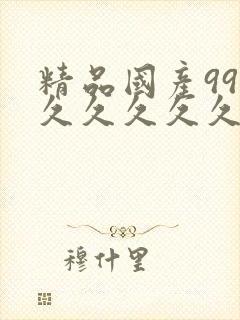 精品國產99
久久久久久
穆什里